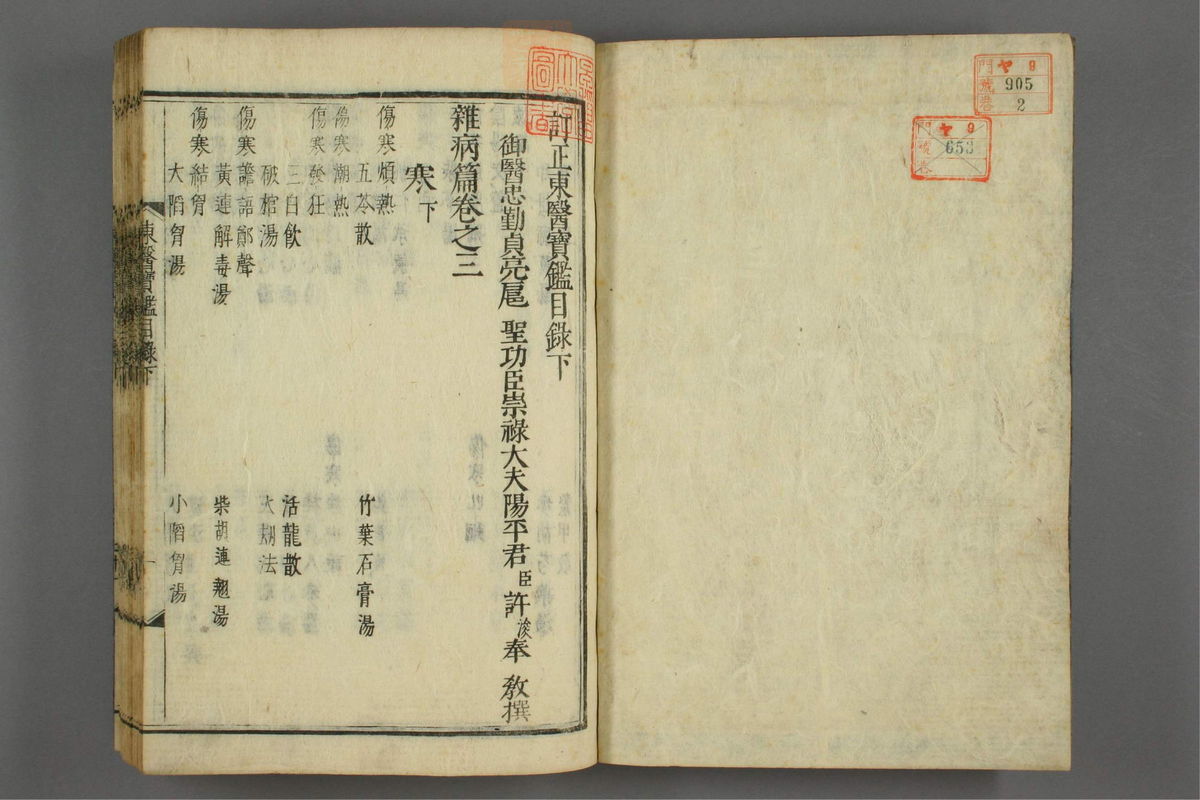 門 ヤ 9
號 905
卷 2
門 ヤ 9
號 653
卷
訂正東醫寶鑑目錄下
御醫忠勤貞亮扈 聖功臣崇祿大夫陽平君臣許浚奉 敎撰
雜病篇卷之三
寒下
傷寒煩熱
五苓散 竹葉石膏湯
傷寒潮熱
傷寒發狂
三白飮 活龍散
破棺湯 水漬法
傷寒譫語鄭聲
黃連解毒湯 柴胡連翹湯
傷寒結胷
大陷胷湯 小陷胷湯
東醫寶鑑目錄下 一